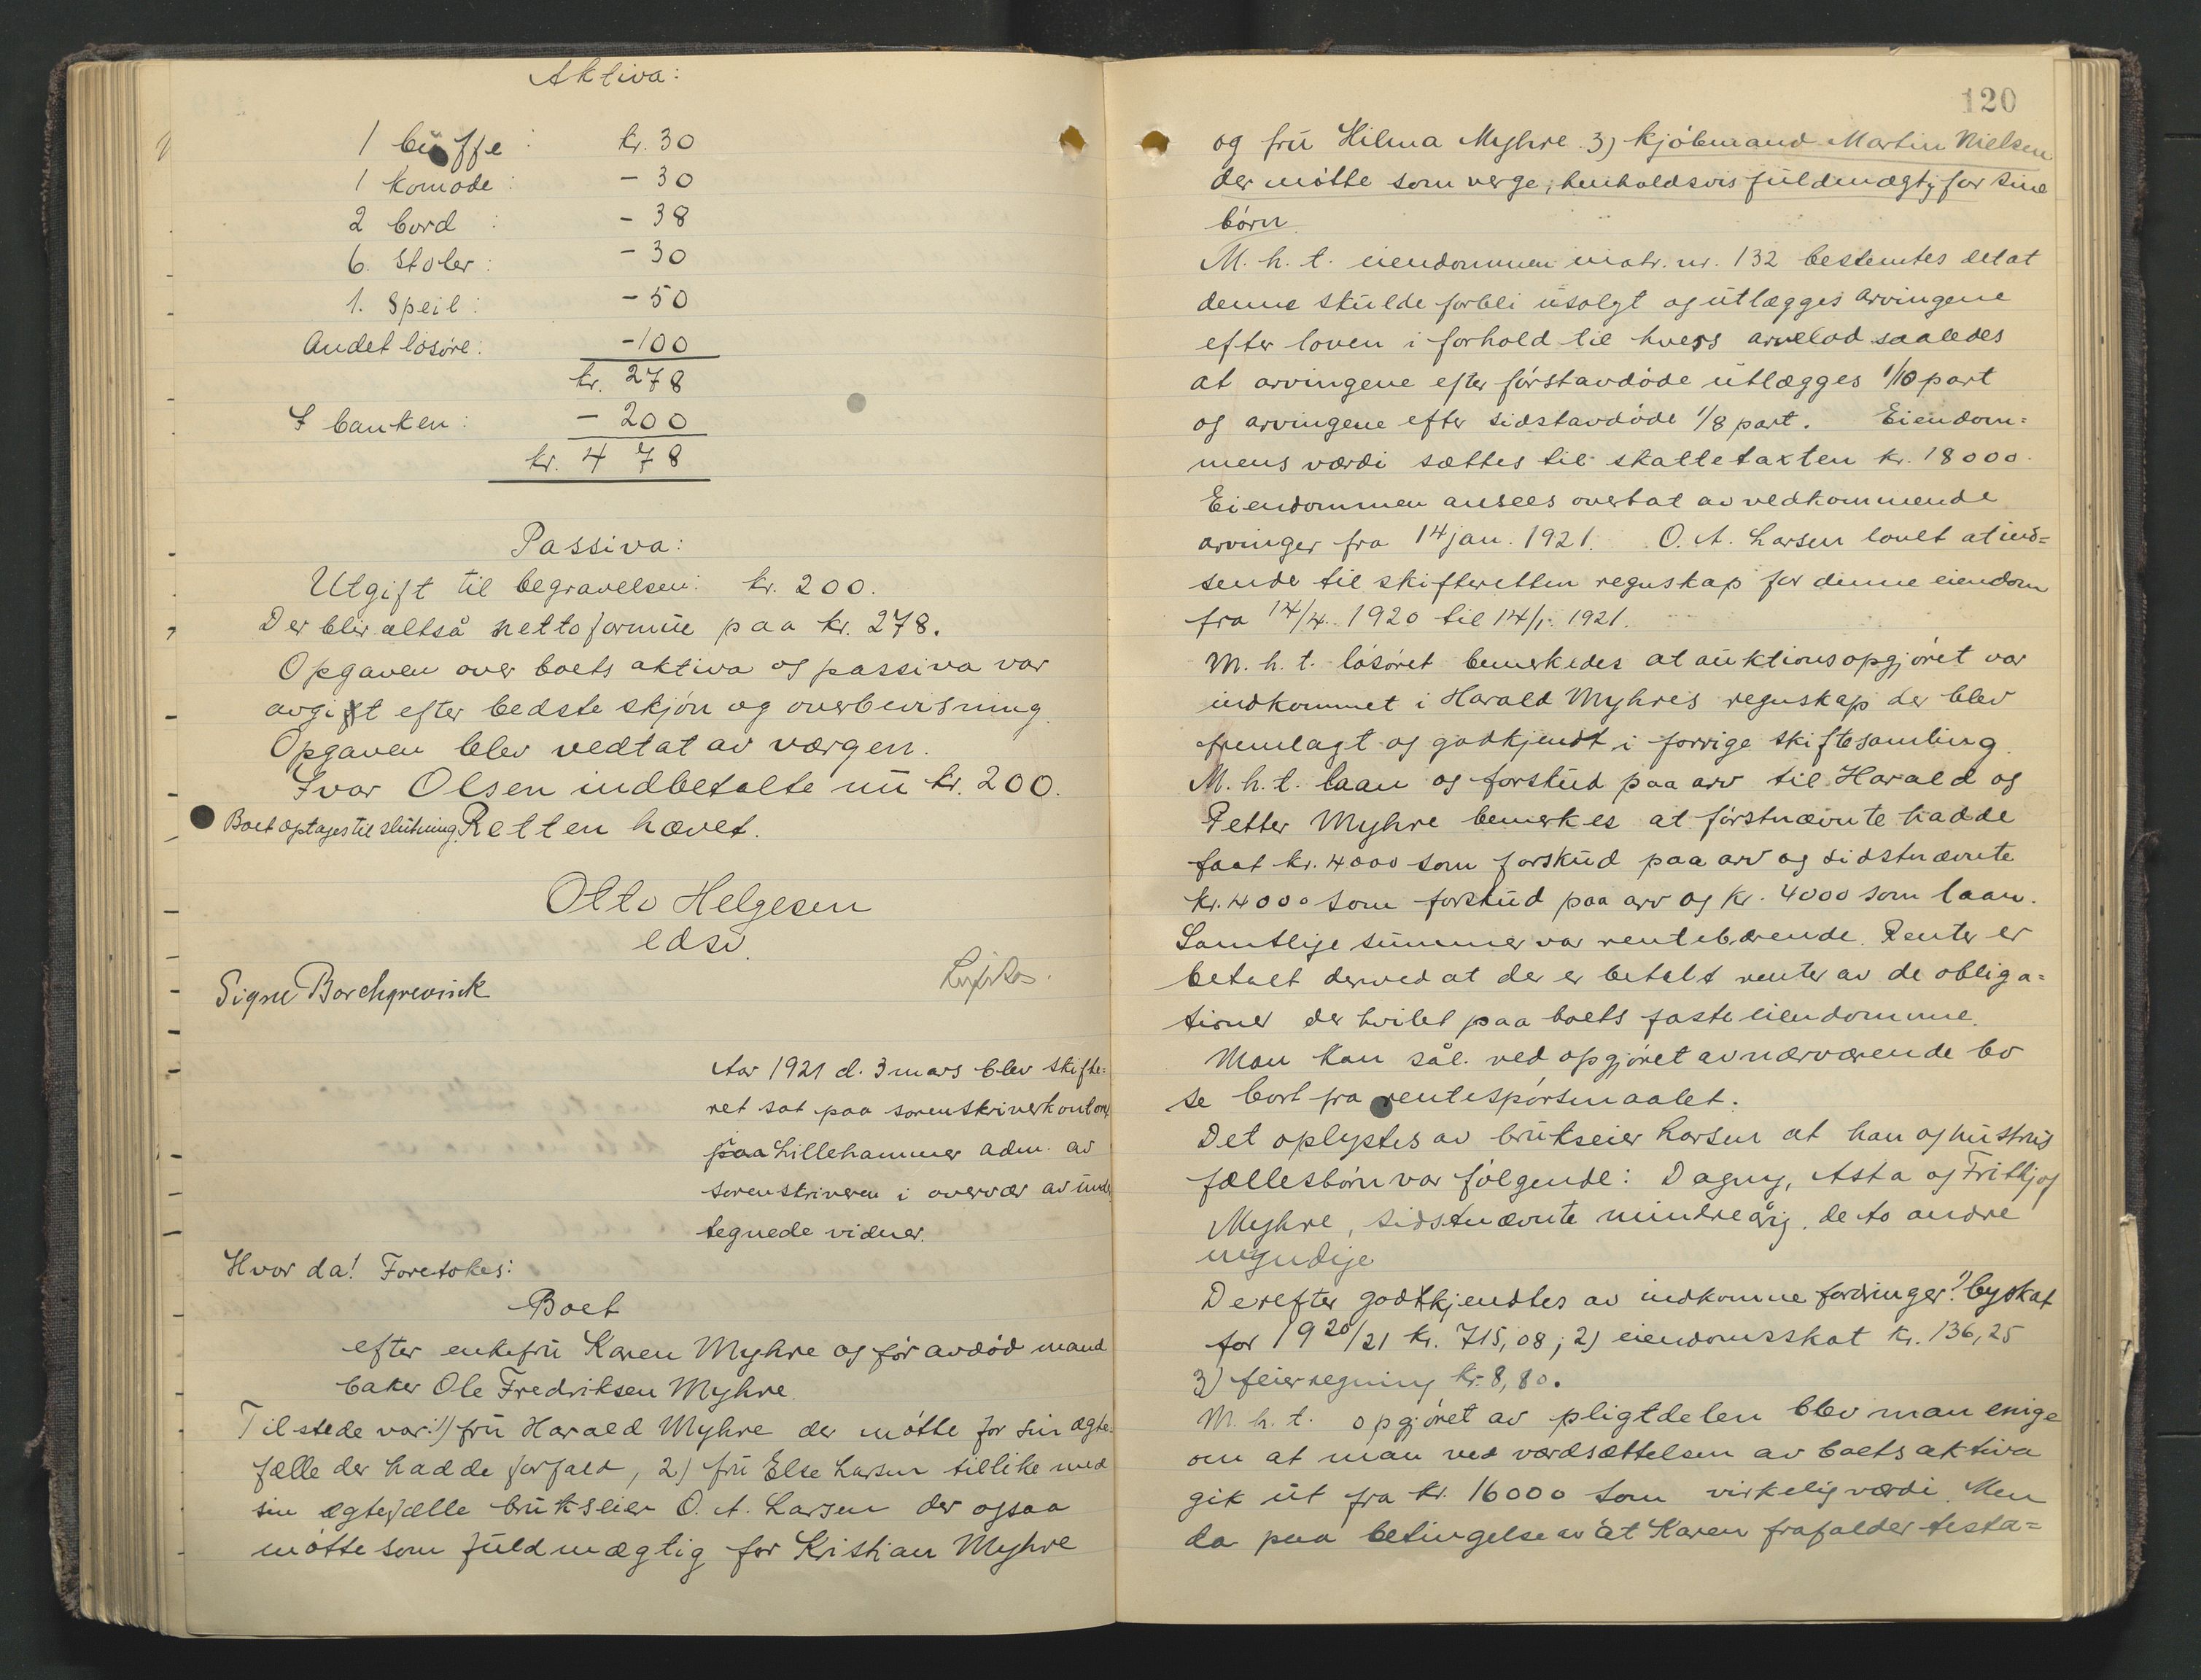 Aktiva:
1 büffe : kr. 30
1 komode : - 30
2 bord : - 38
6. Stoler : - 30
1. Speil : - 50
Andet løsøre: -100
kr. 278
I banken: - 200
kr. 478
Passiva:
Utgift til begravelsen: kr. 200.
Der blir altså nettoformüe paa kr. 278.
Opgaven over boets aktiva og passiva var
avgit efter bedste skjøn og overbevisning.
Opgaven blev vedtat av værgen.
Ivar Olsen indbetalte nü kr. 200.
Boet optages til slütning. Retten hævet.
Otto Helgesen
edsv.
Signe Borchgrevink
Aar 1921 d. 3 mars blev skifte=
ret sat paa sorenskriverkontoret
paa Lillehammer adm. av
sorenskriveren i overvær av under
tegnede vidner.
Hvor da! Foretokes:
Boet
efter enkefrü Karen Myhre og før avdød mand
baker Ole Fredriksen Myhre.
Tilstede var: 1) frü Harald Myhre der møtte for sin ægte=
fælle der hadde forfald, 2) frü Else Larsen tillike med
sin ægtefælle brükseier O. A. Larsen der ogsaa
møtte som füldmægtig for Kristian Myhre
120
og frü Hilma Myhre. 3) kjøbmand Martin Nielsen
der møtte som verge, henholdsvis füldmægtig for sine
børn.
M. h. t. eiendommen matr. nr. 132 bestemtes det at
denne skülde forbli üsolgt og ütlægges arvingene
efter loven i forhold til hvers arvelod saaledes
at arvingene efter førstavdøde ütlægges 1/10 part
og arvingene efter sidstavdøde 1/8 part. Eiendom=
mens værdi sættes til skattetaxten kr. 18000.
Eiendommen ansees overtat av vedkommende
arvinger fra 14 jan. 1921. O. A. Larsen lovet at ind=
sende til skifteretten regnskap for denne eiendom
fra 14/4. 1920 til 14/1. 1921.
M. h. t. løsøret bemerkedes at aüktionsopgjøret var
indkommet i Harald Myhres regnskap der blev
fremlagt og godkjendt i forrige skiftesamling.
M. h. t. laan og forsküd paa arv til Harald og
Petter Myhre bemerkes at førstnævnte hadde
faat kr. 4000 som forsküd paa arv og sidstnævnte
kr. 4000 som forsküd paa arv og kr. 4000 som laan.
Samtlige sümmer var rentebærende. Renter er
betalt derved at der er betalt renter av de obliga=
tioner der hvilet paa boets faste eiendomme.
Man kan sål. ved opgjøret av nærværende bo
se bort fra rentespørsmaalet.
Det oplystes av brükseier Larsen at han og hüstrüs
fællesbørn var følgende: Dagny, Asta og Frithjof
Myhre, sidstnævnte mindreårig, de to andre
myndige
Derefter godtkjendtes av indkomne fordringer: 1) byskat
for 1920/21 kr. 715,08; 2) eiendomsskat kr. 136,25
3) feierregning kr. 8,80.
M. h. t. opgjøret av pligtdelen blev man enige
om at man ved værdsættelsen av boets aktiva
gik üt fra kr. 16000 som virkelig værdi. Men
da paa betingelse av at Karen frafalder testa=